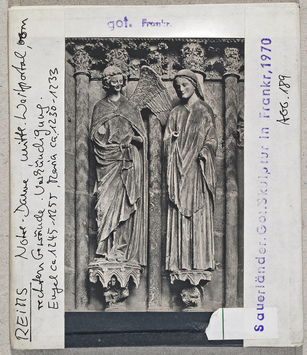 got. Frankr.
REIMS Notre-Dame mittl. Westportal, vom
rechten Gewände. Verkündigung.
Engel ca 1245-1255, Maria ca. 1230-1233
Sauerländer: Got. Skulptur in Frankr, 1970
Abb. 189